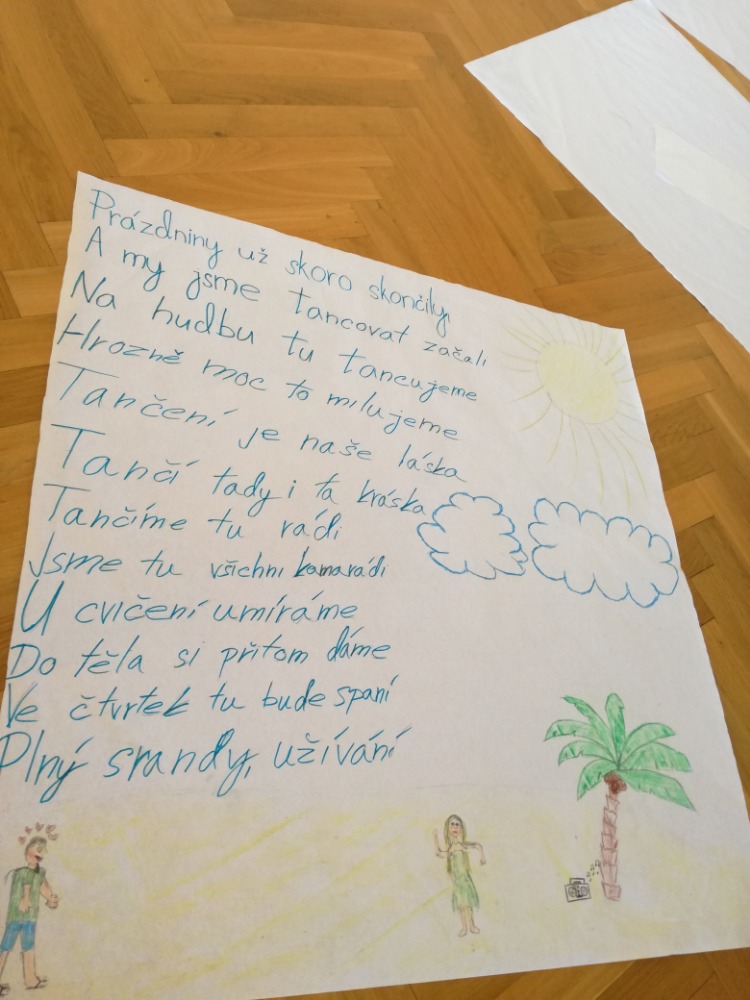 Prázdniny už skoro skončily,
A my jsme tancovat začali
Na hudbu tu tancujeme
Hrozně moc to milujeme
Tančení je naše láska
Tančí tady i ta kráska
Tančíme tu rádi
Jsme tu všichni kamarádi
U cvičení umíráme
Do těla si přitom dáme
Ve čtvrtek tu bude spaní
Plný srandy, užívání